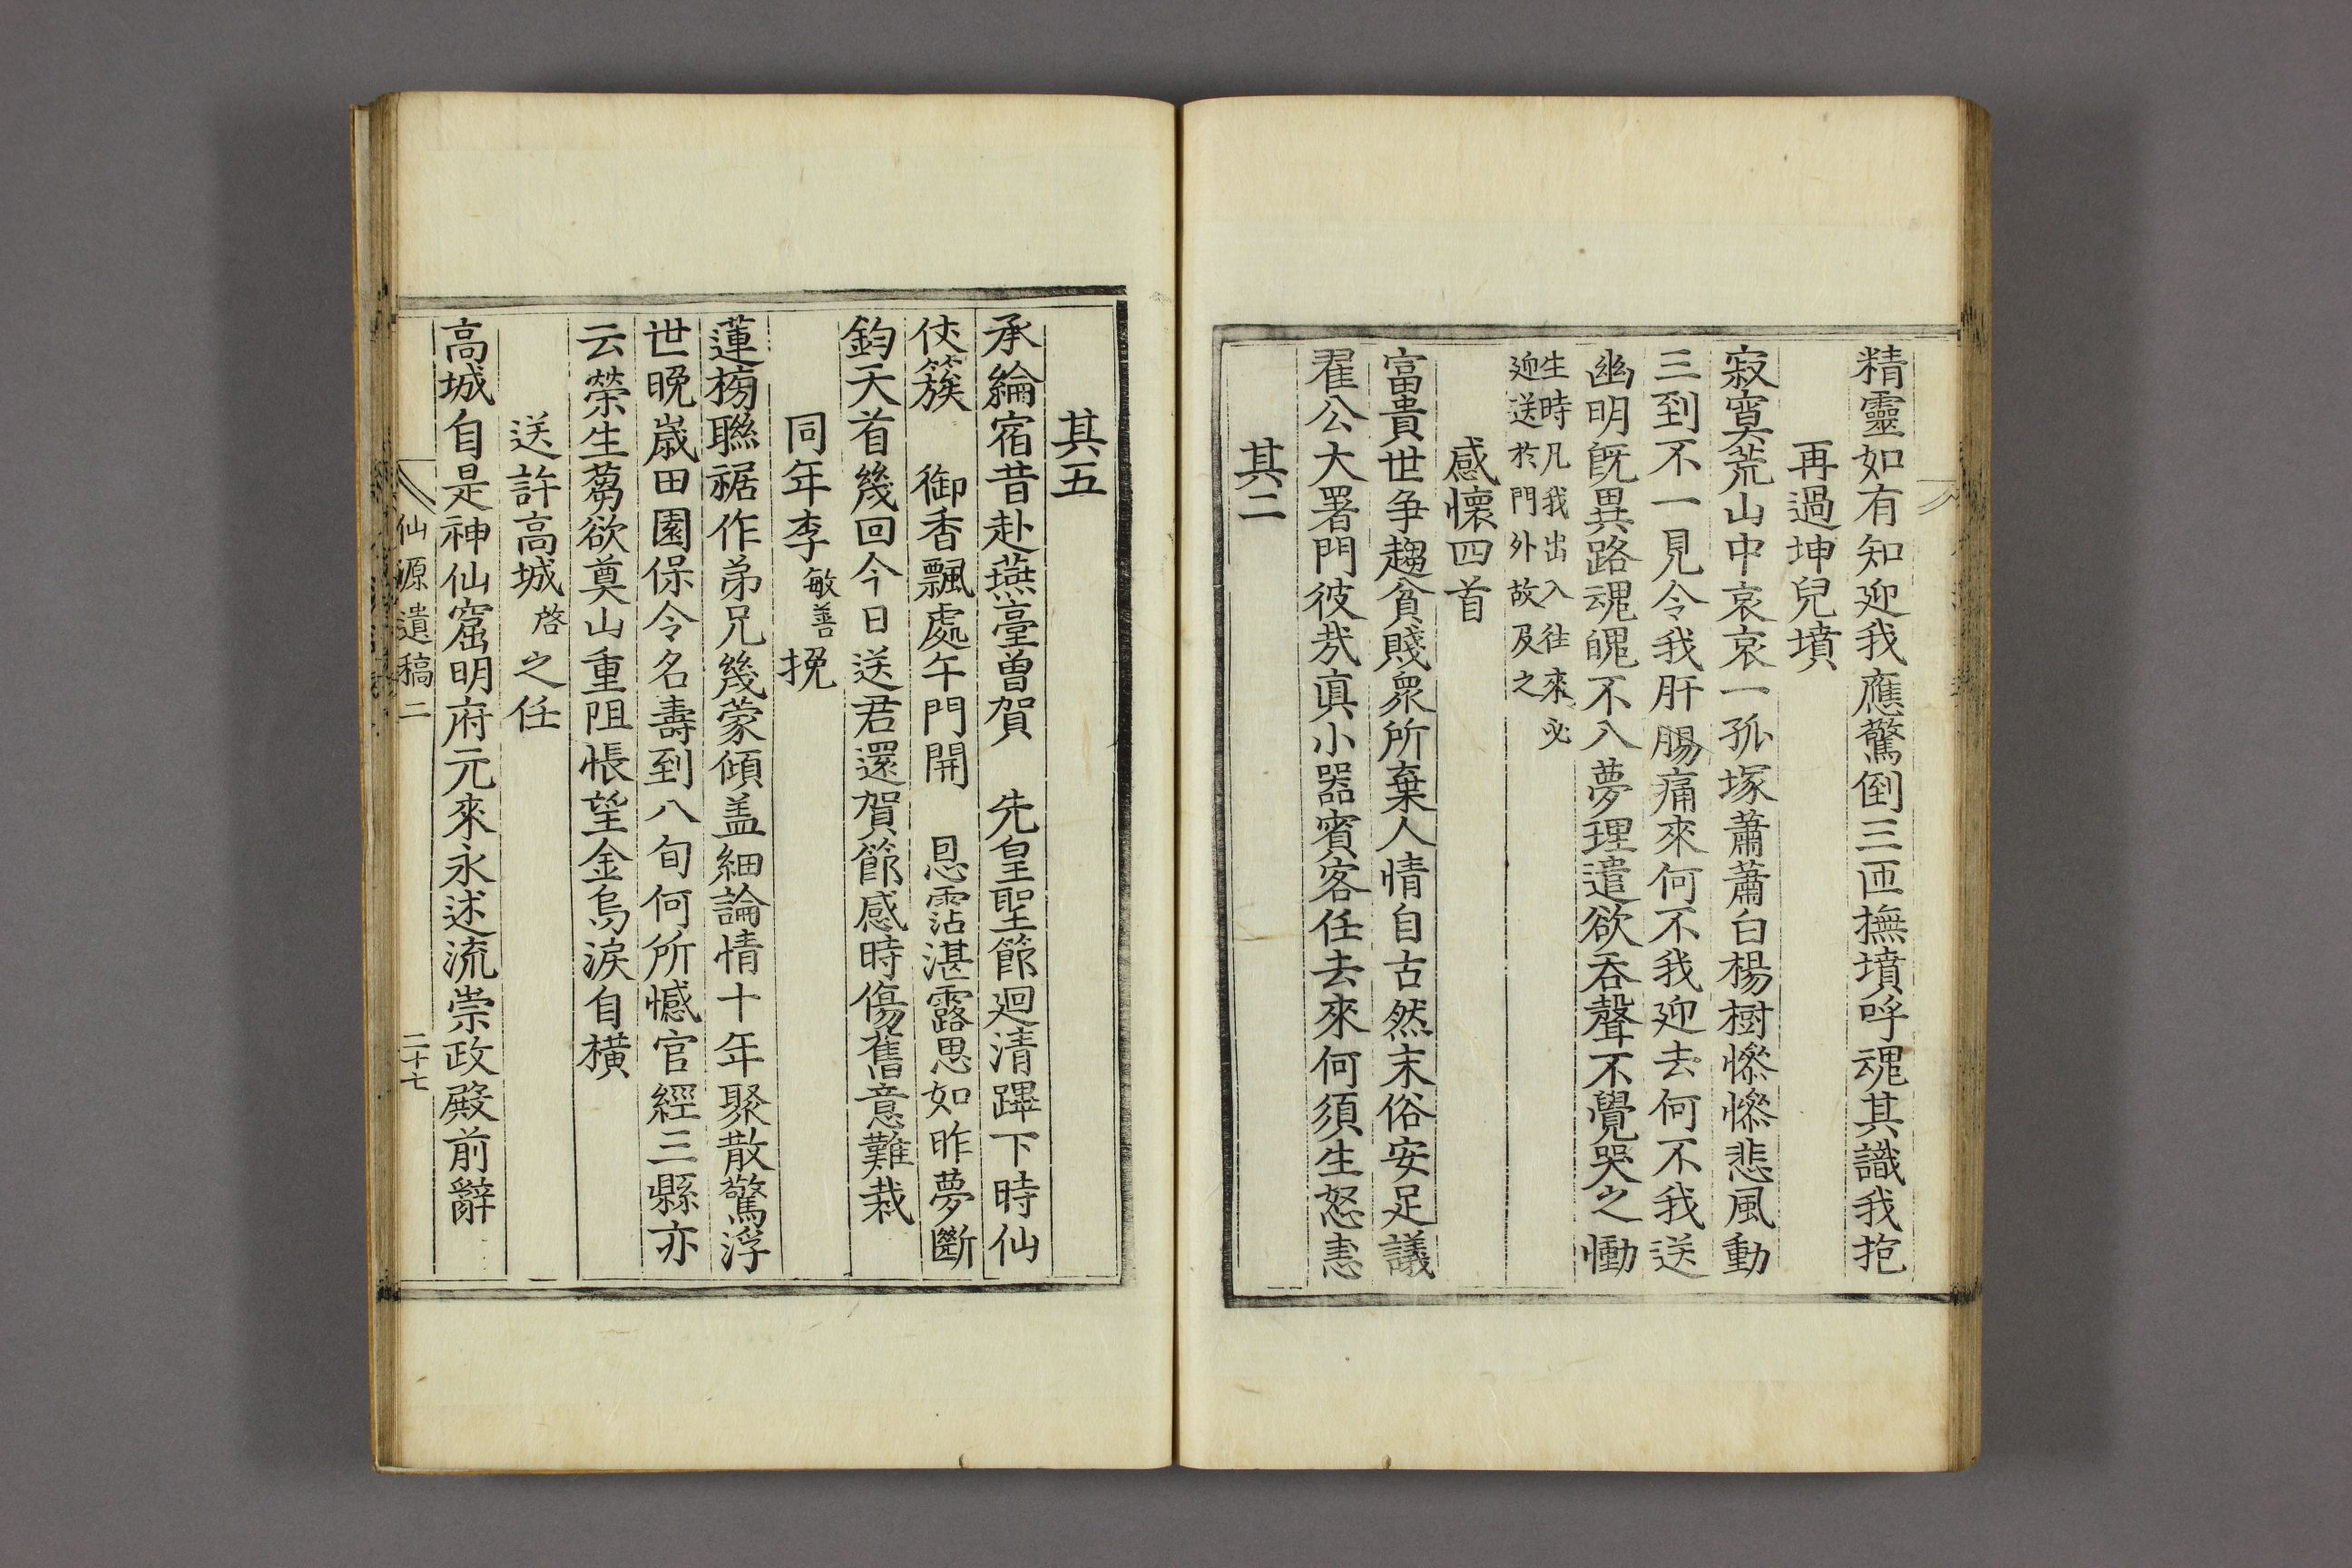 精靈如有知迎我應驚倒三匝撫墳呼魂其識我抱
再過坤兒墳
寂寞荒山中哀哀一孤塚蕭蕭白楊樹慘慘悲風動
三到不一見令我肝腸痛來何不我迎去何不我送
幽明旣異路魂魄不入夢理遣欲吞聲不覺哭之慟
生時凡我出入往來必
迎送於門外故及之
感懷四首
富貴世爭趨貧賤衆所棄人情自古然末俗安足議
翟公大署門彼㢤眞小器賓客任去來何須生怒恚
其二
其五
承綸宿昔赴燕臺曾賀　先皇聖節廻清蹕下時仙
仗簇　御香飄處午門開　恩霑湛露思如昨夢斷
鈞天首幾回今日送君還賀節感時傷舊意難裁
同年李敏善挽
蓮榜聯裾作弟兄幾蒙傾盖細論情十年聚散驚浮
世晩歲田園保令名壽到八旬何所憾官經三縣亦
云榮生蒭欲奠山重阻悵望金烏淚自橫
送許高城啓之任
高城自是神仙窟明府元來永述流崇政殿前辭
仙源遺稿二
二十七